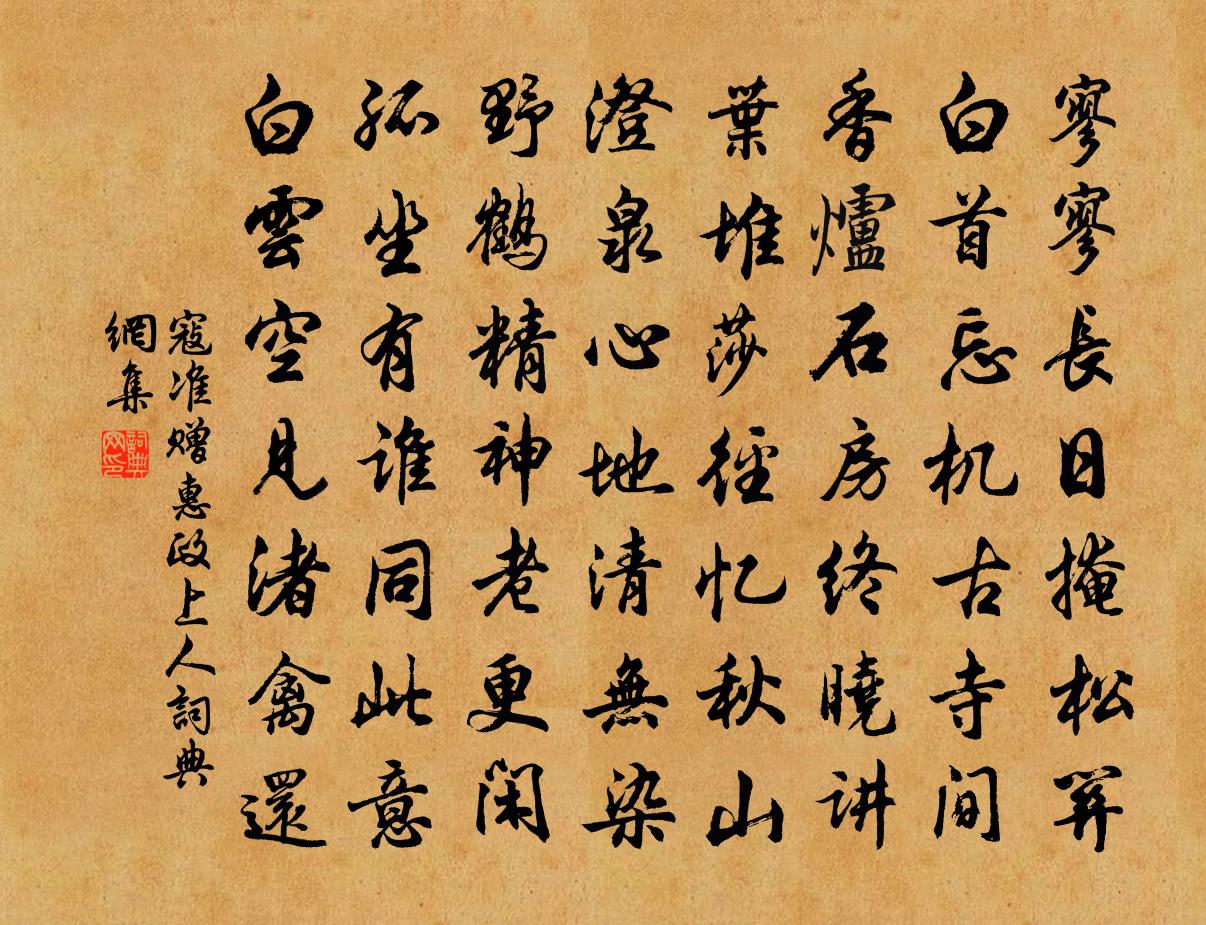 寥寥長日掩松關
白首忘机古寺間
香爐石房終曉讲
葉堆莎徑忆秋山
澄泉心地清無染
野鶴精神老更閑
孤坐有誰同此意
白雲空見渚禽還
寇准赠惠政上人詞典
網集
詞典
网印